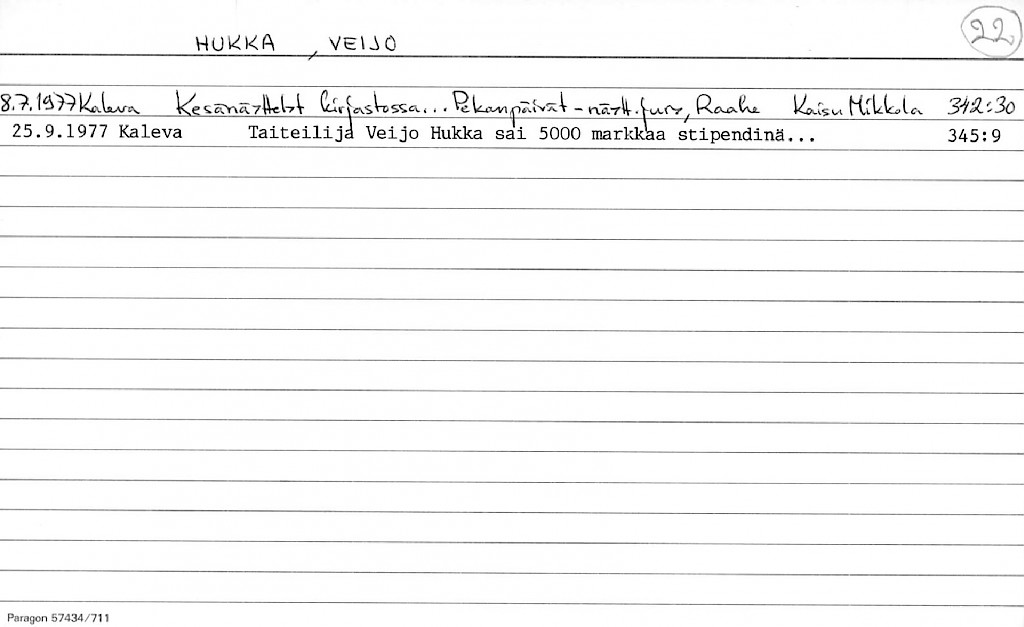 22.
HUKKA, VEIJO
8.7.1977 Kaleva Kesänäyttelyt kirjastossa... Pekanpäivät-näytt. jury, Raahe Kaisu Mikkola 342:30
25.9.1977 Kaleva Taiteilija Veijo Hukka sai 5000 markkaa stipendinä... 345:9
Paragon 57434/711